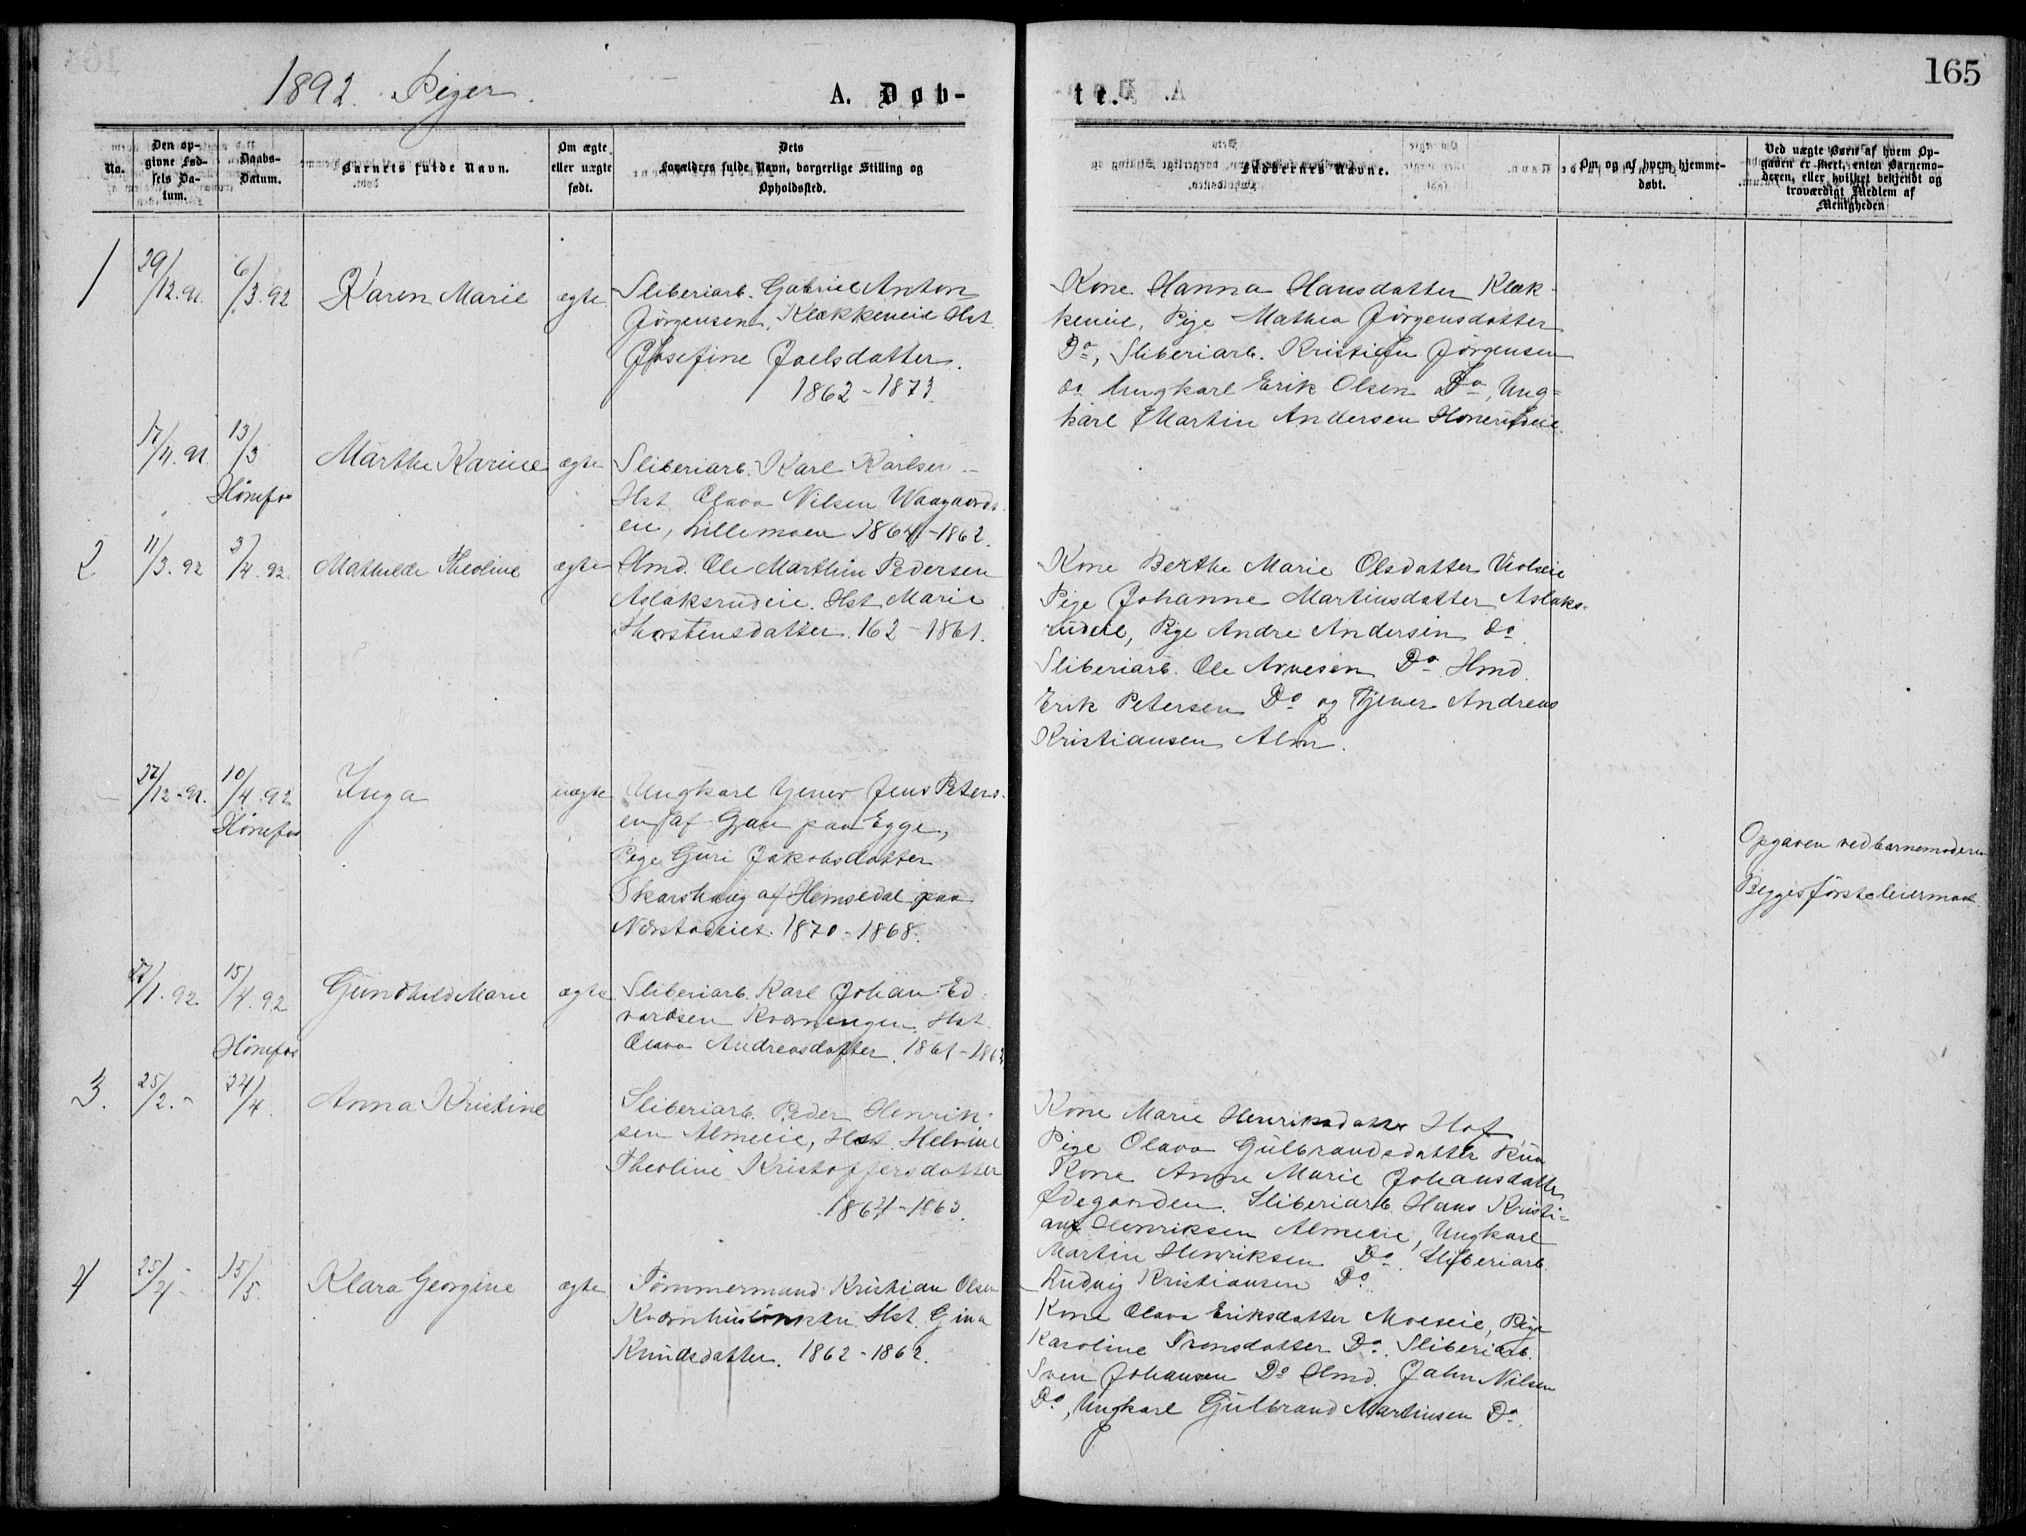 165
1892. Piger.
A. Døb-
te.
No.
Den op-
givne Fød-
sels Da-
tum.
Daabs-
Datum.
Barnets fulde Navn.
Om ægte
eller uægte
født.
Dets
Forældres fulde Navn, borgerlige Stilling og
Opholdssted.
Faddernes Navne.
Om og af hvem hjemme-
døbt.
Ved uægte Børn af hvem Op-
gaven er skeet, enten Barnemo-
deren, eller hvilket bekjendt og
troværdigt Medlem af
Menigheden
1
29/12.91.
6/3.92
Karen Marie
ægte
Sliberiarb. Gabriel Anton
Jørgensen, Klækkeneie Hst
Josefine Joelsdatter.
1862-1873.
Kone Hanna Hansdatter Klæk-
keneie, Pige Mathea Jørgensdatter
Do, Sliberiarb. Kristian Jørgensen
do Ungkarl Erik Olsen Do, Ung-
karl Martin Andersen
13/3
Hønefos
Marthe Karine
ægte
Sliberiarb. Karl Karlsen
Hst. Olava Nilsen Waagaards-
eie, Lillemoen 1864-1862.
2
11/3.92
3/4.92.
Mathilde Theoline
ægte
Hmd. Ole Marthin Pedersen
Aslaksrudeie. Hst Marie
Thorstensdatter. 162-1861.
Kone Berthe Marie Olsdatter
Pige Johanne Martinsdatter Aslaks-
rudeie, Pige Andre Andersen do
Sliberiarb. Ole Arnesen Do. Hmd.
Erik Petersen Do og Tjener Andreas
Kristiansen Alm.
27/12-91.
10/4.92
Hønefos
Inga
uægte
Ungkarl tjener Jens Peters-
en af Gran paa Egge,
Pige Guri Jakobsdatter
Skarshaug af Hemsedal paa
1870-1868.
Opgaven ved barnemoderen
Begges første leiermaal.
27/1.92.
15/4.92
Hønefos
Gundhild Marie
ægte
Sliberiarb. Karl Johan Ed-
vardsen Kværnengen. Hst.
Olava Andreasdatter. 1861-
3.
25/2.-
24/4.
Anna Kristine
Sliberiarb. Peder Henrik-
sen Almeeie, Hst. Helvine
Theoline Kristoffersdatter
1864-1863.
Kone Marie Henriksdatter Hof,
Pige Olava Gulbrandsdatter
Kone Anne Marie Johansdatter
Ødegaarden. Sliberiarb. Hans Kristi-
an Henriksen Almeeie, Ungkarl
Martin Henriksen Do. Sliberiarb.
Ludvig Kristiansen Do.
4
25/4-
15/5.
Klara Georgine
ægte
Tømmermand Kristian Olsen
Hst. Gina
Knudsdatter. 1862-1862.
Kone Olava Eriksdatter Moeseie, Pige
Karoline Tronsdatter Do. Sliberiarb.
Sven Johansen Do Hmd. Jahn Nilsen
Do, Ungkarl Gulbrand Martinsen Do.